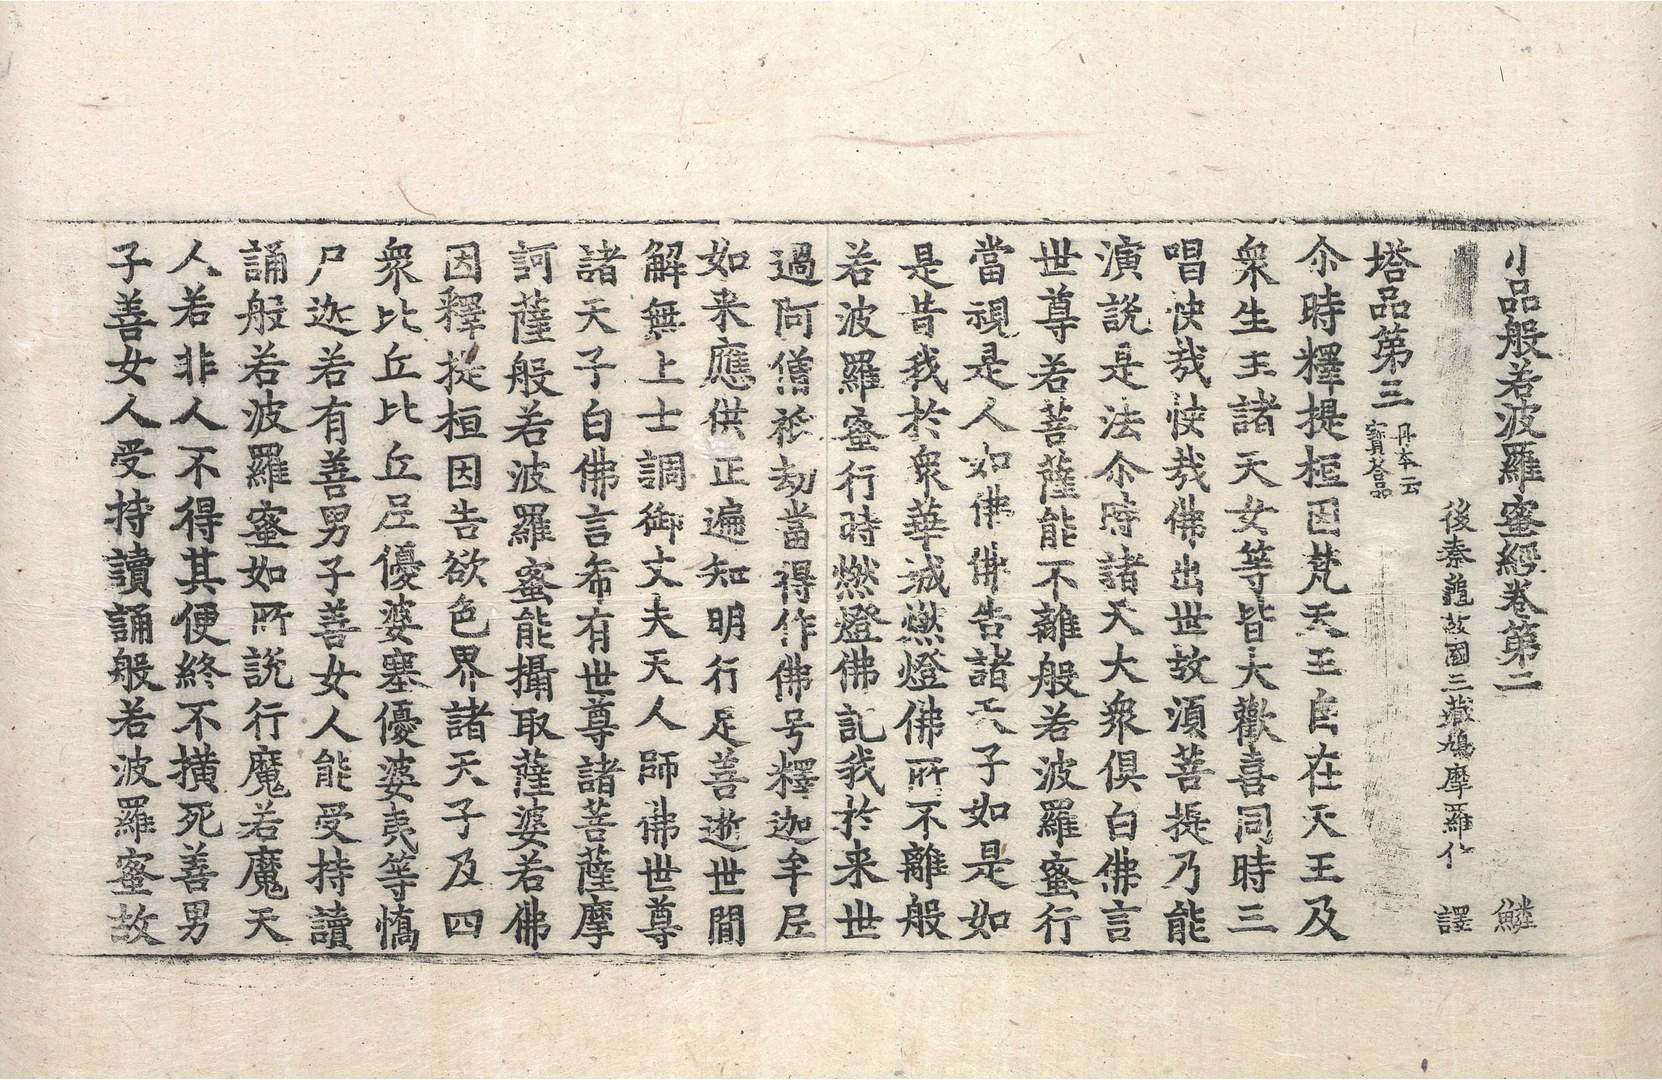 小品般若波羅蜜經卷第二 鱗
後秦龜茲國三藏鳩摩羅什 譯
塔品第三 丹本云寶荅品
尒時釋提桓因梵天王自在天王及
衆生主諸天女等皆大歡喜同時三
唱快㢤快㢤佛出世故湏菩提乃能
演說是法尒時諸天大衆俱白佛言
世尊若菩薩能不離般若波羅蜜行
當視是人如佛佛告諸天子如是如
是昔我於衆華城燃燈佛所不離般
若波羅蜜行時燃燈佛記我於来世
過阿僧祇劫當得作佛号釋迦牟尼
如来應供正遍知明行足善逝世間
解無上士調御丈夫天人師佛世尊
諸天子白佛言希有世尊諸菩薩摩
訶薩般若波羅蜜能攝取薩婆若佛
因釋提桓因告欲色界諸天子及四
衆比丘比丘尼優婆塞優婆夷等憍
尸迦若有善男子善女人能受持讀
誦般若波羅蜜如所說行魔若魔天
人若非人不得其便終不撗死善男
子善女人受持讀誦般若波羅蜜故